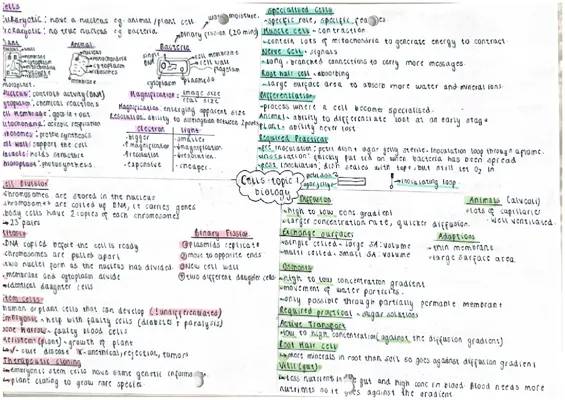 Cells
Eukaryotic: have a nucleus eg: animal / plant cell
Prokaryotic: no true nucleus eg: bacteria
Binary fission (20 min)
moisture.
Plant
Animal
Bacteria
nucleus
mitochondria
cytoplasm
ribosomes
cell membrane
cell wall
flagellum
cytoplasm
plasmids
Nucleus: controls activity (DNA)
cytoplasm: chemical reactions
cell membrane: goes in + out
mitochondria: aerobic respiration
ribosomes: protein synthesis
cell wall: support the cell
holds structure
photosynthesis
Magnification: image size
real size
Magnification: enlarging apparent size
Resolution: ability to distinguish between 2 points
electron
light
bigger
smaller
↑ magnification
↓ magnification
↑ resolution
↓ resolution
expensive
cheaper
Specialised cells
- specific role, specific features
Muscle cell - contraction
- contain lots of mitochondria to generate energy to contract
Nerve cell - signals
- long, branched connections to carry more messages.
Root hair cell - absorbing
- large surface area to absorb more water and mineral ions.
Differentiation
- process where a cell become specialised.
Animal - ability to differentiate lost at an early stage
Plant - ability never lost
Required Practical
- pre inoculation: petri dish + agar jelly sterile. Inoculation loop through flame.
- inoculation: quickly put lid on when bacteria has been spread
- post inoculation: dish sealed with tape, but still let O2 in
petri dish
agar jelly
inoculating loop
Cells - topic 1
biology
Cell Division
chromosomes are stored in the nucleus
chromosomes are coiled up DNA, it carries genes
body cells have 2 copies of each chromosomes
→ 23 pairs
Mitosis
- DNA copied before the cell is ready
chromosomes are pulled apart
two nuclei form as the nucleus has divided.
membrane and cytoplasm divide
- identical daughter cells
Binary Fission
① plasmids replicate
② move to opposite ends
③ new cell wall
④ two different daughter cells
Stem cells
human or plant cells that can develop (undifferentiated)
Embryonic - help with faulty cells (diabetes + paralysis)
Bone marrow - faulty blood cells
Meristem (plant) - growth of plant
✓ - cure disease X - unethical, rejection, tumors
Therapeutic cloning
→ embryonic stem cells have same genetic information
→ plant cloning to grow rare species
Diffusion
- high to low conc gradient
- larger concentration rate, quicker diffusion.
Animals (alveoli)
- lots of capillaries
- well ventilated.
Exchange surfaces
- single celled - large SA:volume
- multi celled - small SA:volume
Adaptions
- thin membrane
- large surface area
Osmosis
- high to low concentration gradient
- movement of water particles.
- only possible through partially permable membrane
Required practical - sugar solutions
Active Transport
- low to high concentration (against the diffusion gradient)
Root Hair cell
→ more minerals in root than soil so goes against diffusion gradient
Villi (gut)
→ less nutrient in gut and high conc in blood. Blood needs more
nutrients so it goes against the gradient